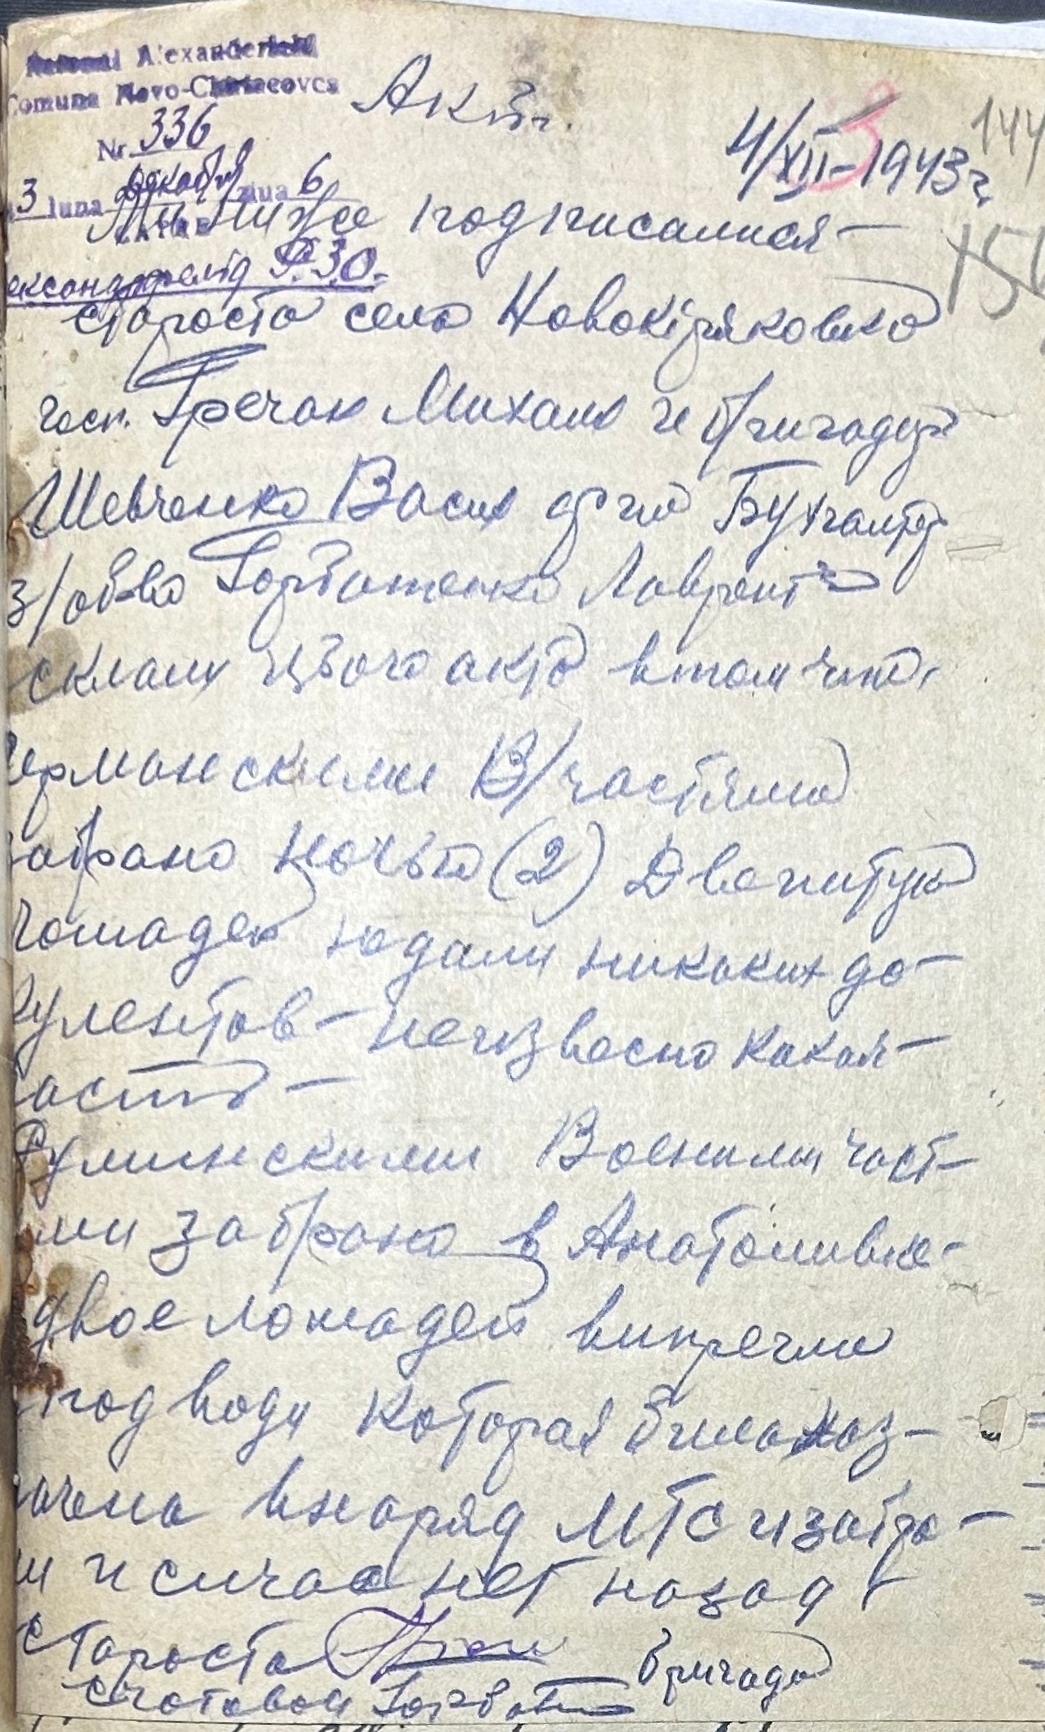 Alexanderfeld
Comuna Novo-Chiriacovca
Акт.
144
Nr. 336
4/XII-1943 г.
3 luna декабря ziua 6
Ми ниже подписался –
Р.З.О.
староста села Новокіряковка
госп. Гречан Михаил и бригадир
Шевченко Васил
Бухгалтер
з/об-ва Горбатенко Лаврент
склали цього акта в том что,
ерманскими В/частями
абрано ночью (2) Две штуки
лошадей недали никаких до-
кументов – неизвесно какая –
асть –
Румынскими Военими част-
ми забрано в Анатоливке –
двое лошадей випрегли
подводи которая била наз-
ачена внаряд МТС и забра-
ли и сичас нет назад
староста
бригада
счотовод Горбат